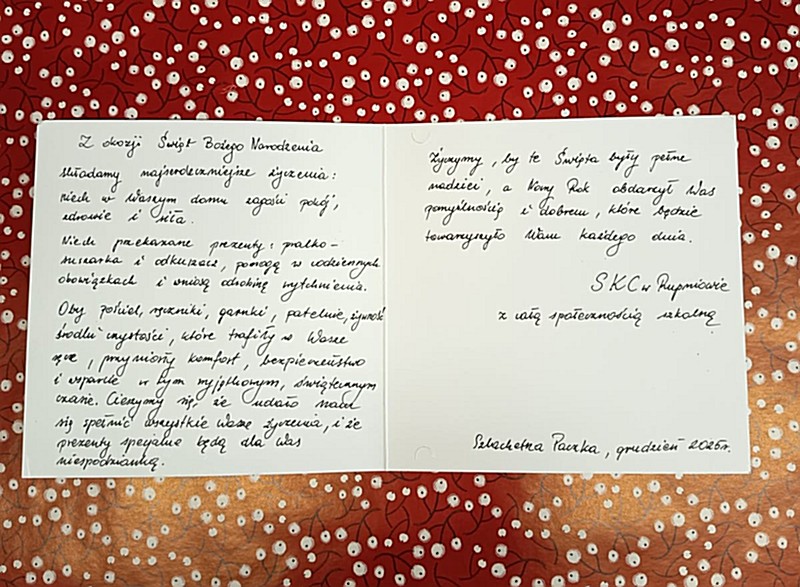 Z okazji Świąt Bożego Narodzenia
składamy najserdeczniejsze życzenia:
niech w Waszym domu zagości pokój,
zdrowie i siła.
Niech przekazane prezenty: pralko-
suszarka i odkurzacz, pomogą w codziennych
obowiązkach i wniosą odrobinę wytchnienia.
Oby pościel, ręczniki, garnki, patelnie, żywność
środki czystości, które trafiły w Wasze
ręce, przyniosły komfort, bezpieczeństwo
i wsparcie w tym wyjątkowym, świątecznym
czasie. Cieszymy się, że udało nam
się spełnić wszystkie Wasze życzenia, i że
prezenty specjalne będą dla Was
niespodzianką.
Życzymy, by te Święta były pełne
nadziei, a Nowy Rok obdarzył Was
pomyślnością i dobrem, które będzie
towarzyszyło Wam każdego dnia.
SKC w Rupniowie
z całą społecznością szkolną
Szlachetna Paczka, grudzień 2025r.